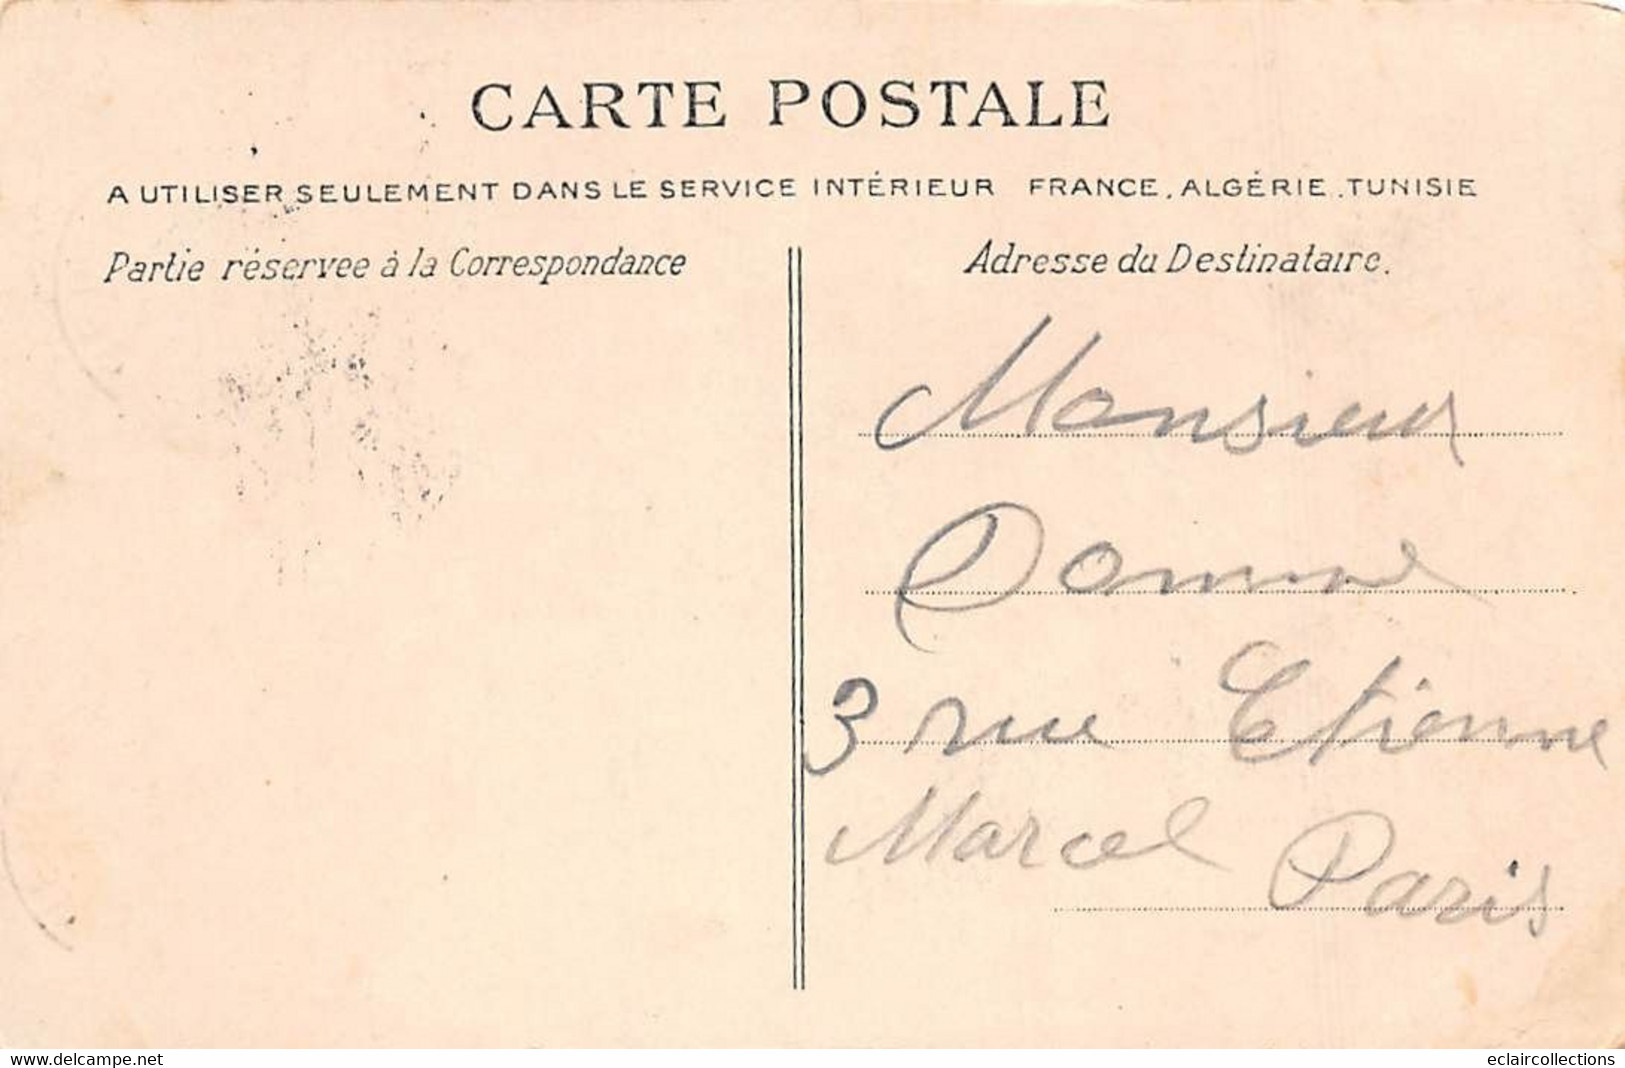 CARTE POSTALE
A UTILISER SEULEMENT DANS LE SERVICE INTÉRIEUR FRANCE, ALGÉRIE, TUNISIE
Partie réservee à la Correspondance
Adresse du Destinataire.
Monsieur
3 rue Etienne
Marcel Paris
www.delcampe.net
eclaircollections